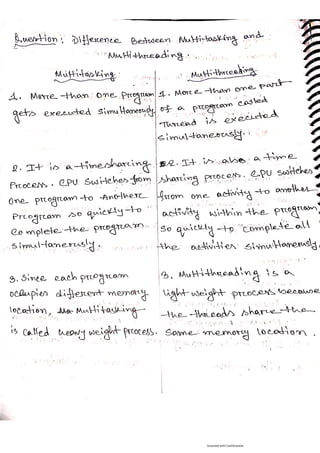 Question: Difference Between Mutti-tasking and
Mutti-threading.
Mutti-tasking
1. More than one program
gets executed simultaneously
2. It is a timesharing
Process. CPU Switches from
one program to Another
Program so quickly to
Complete the program
simultaneously.
3. Since each program
occupies different memory
location, Mutti tasking
is called heavy weight process.
Mutti-threading
1. More than one part
of a program called
Thread is executed
simultaneously.
2. It is also a time
sharing process. CPU switches
from one activity to another
activity within the program
so quickly to complete all
the activities simultaneously.
3. Muttithreading is a
light weight process because
the threads share the
same memory location.
Scanned with CamScanner